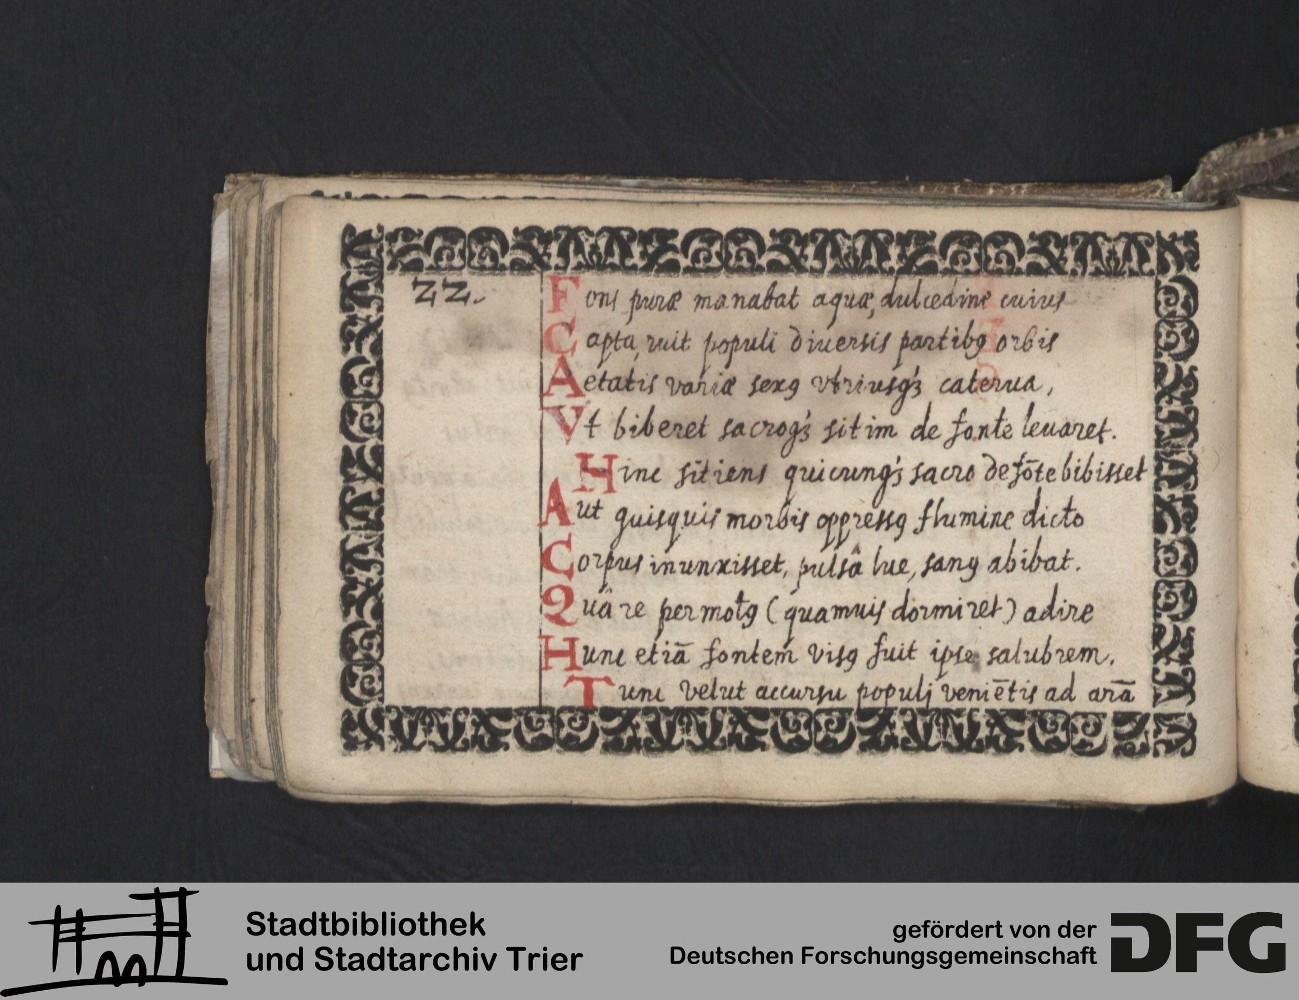 22.
Fons puræ manabat aquæ, dulcedine cuius
Capta, ruit populi diuersis partibꝯ orbis
Aetatis variæ sexꝯ vtriusqꝫ caterua,
Vt biberet sacroqꝫ sitim de fonte leuaret.
Hinc sitiens quicunqꝫ sacro de fōte bibisset
Aut quisquis morbis oppressꝯ flumine dicto
Corpus inunxisset, pulsâ lue, sanꝯ abibat.
Quâ re permotꝯ (quamuis dormiret) adire
Hunc etiā fontem visꝯ fuit ipse salubrem.
Tunc velut accursu populj veniētis ad arā
Stadtbibliothek
und Stadtarchiv Trier
gefördert von der
Deutschen Forschungsgemeinschaft
DFG